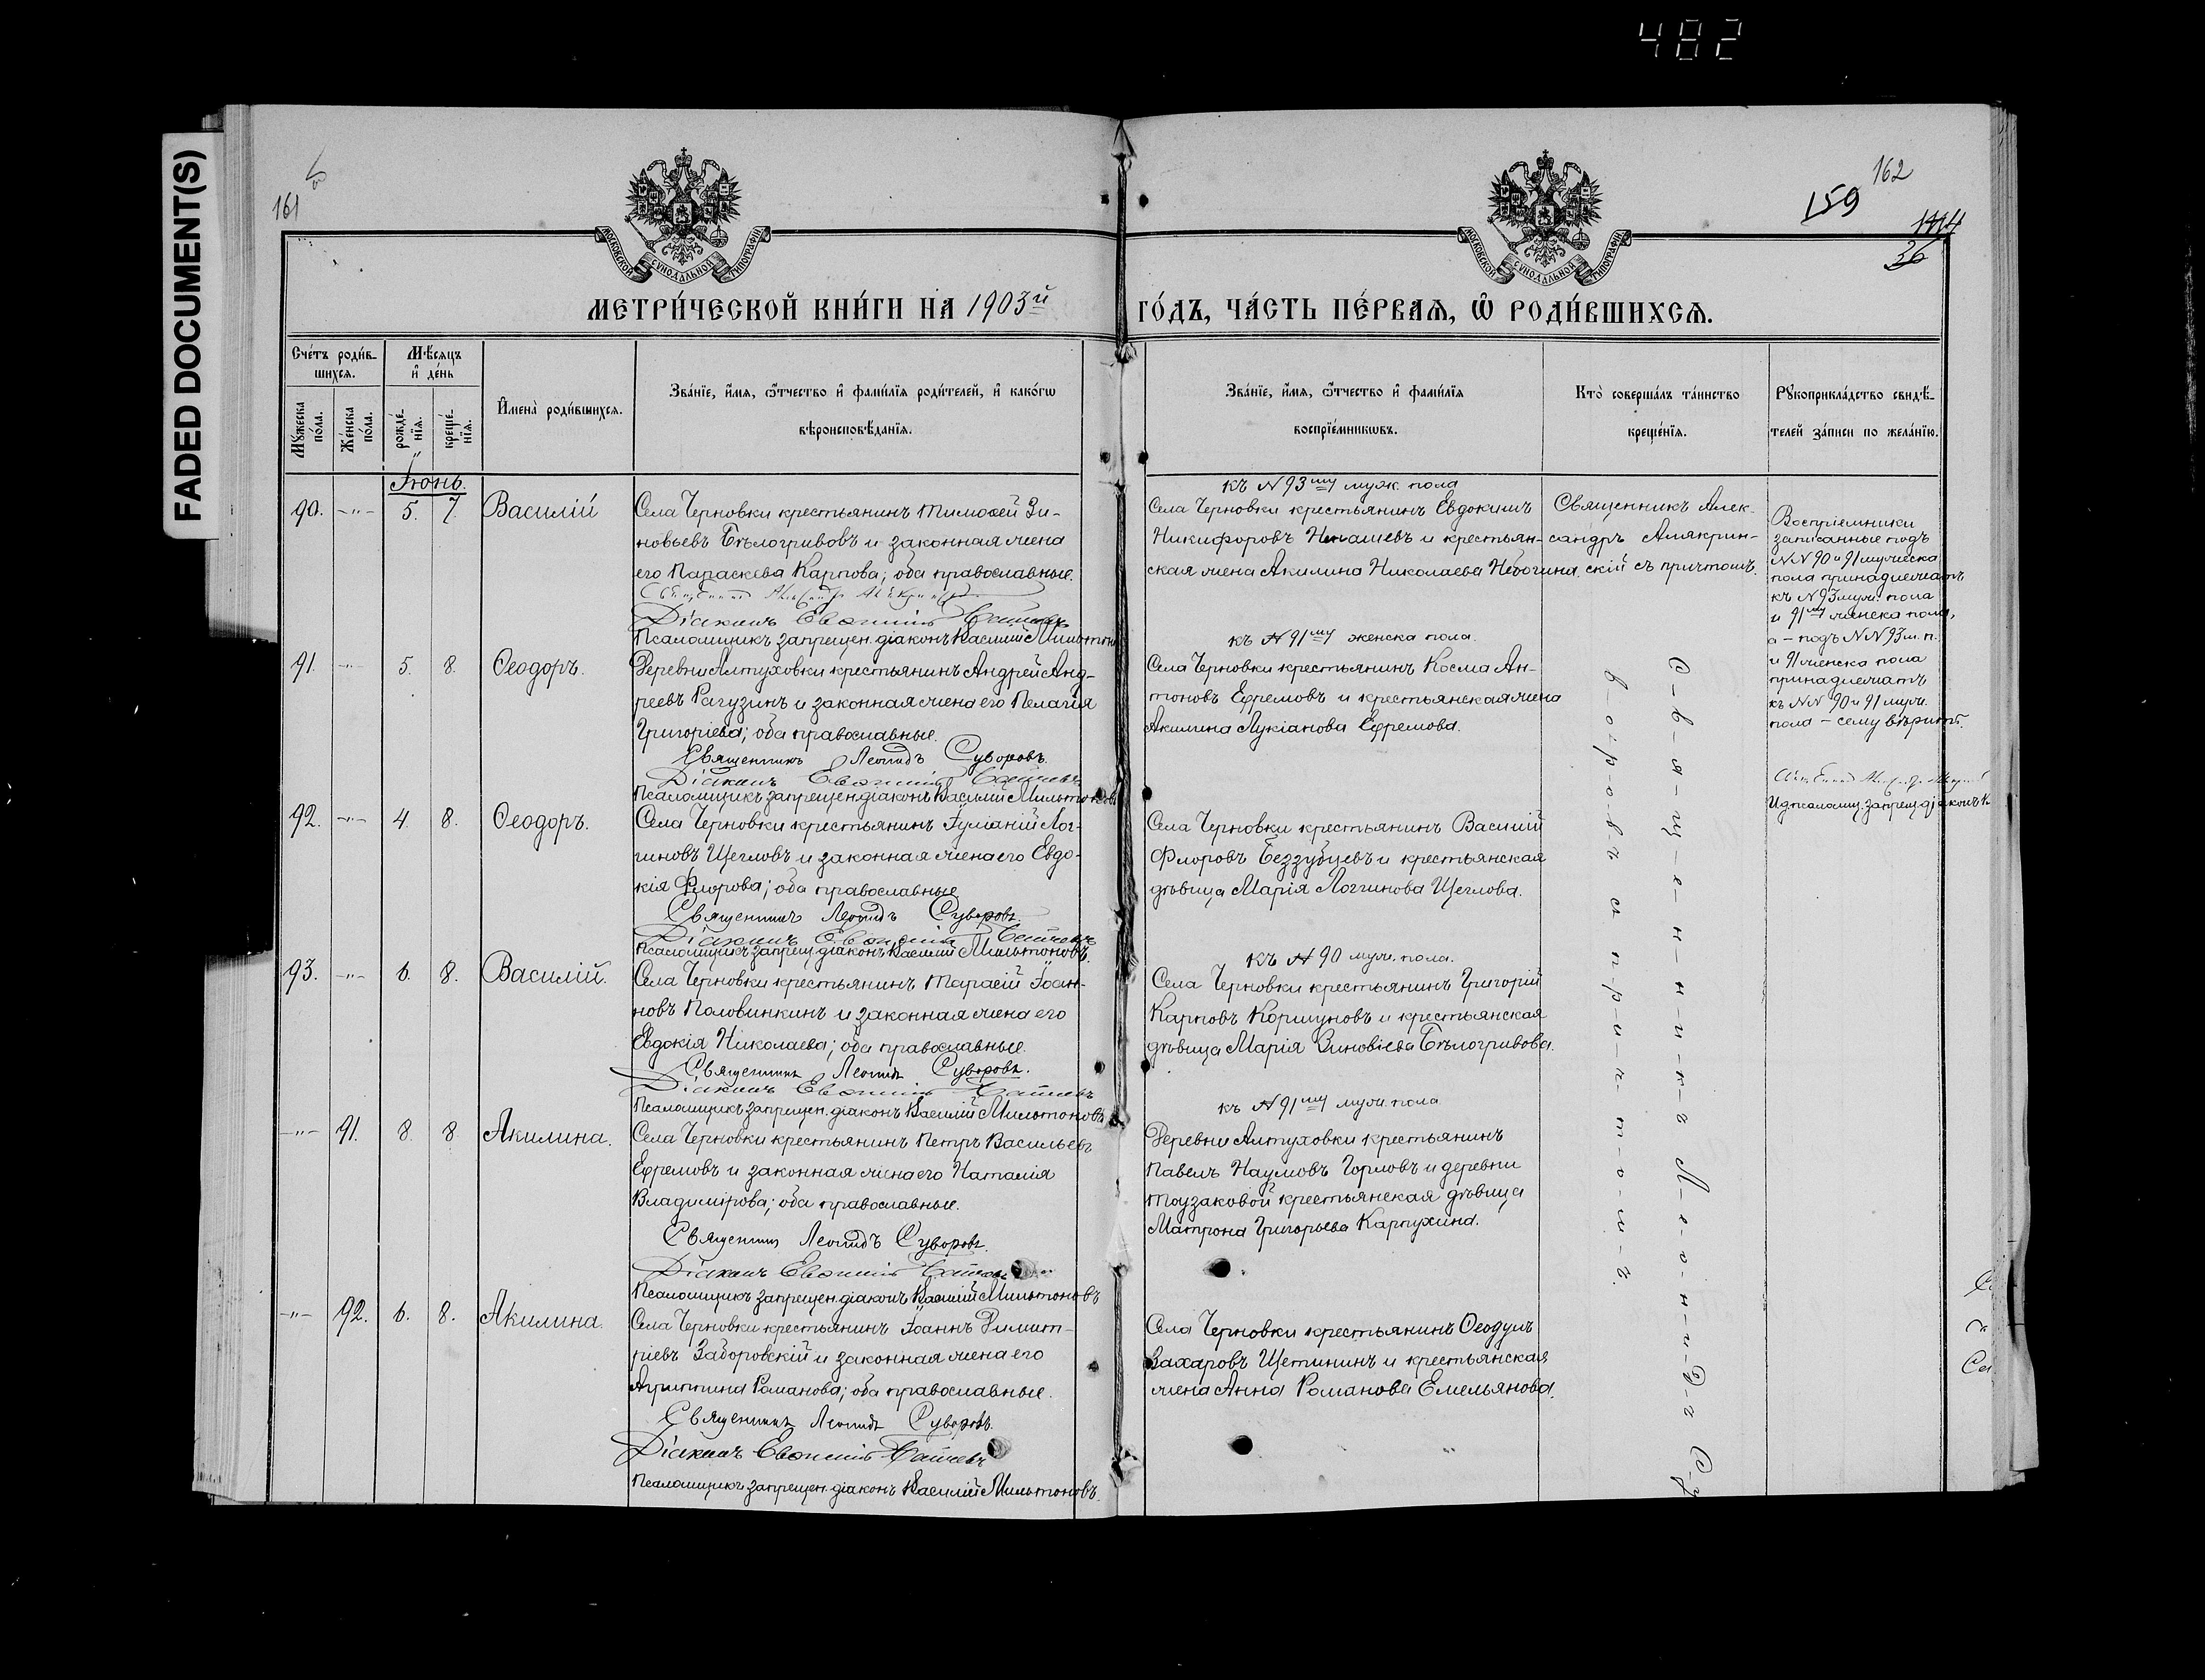 482
FADED DOCUMENT(S)
161
162
159
36
МОСКОВСКОЙ СѴНОДАЛЬНОЙ ТИПОГРАФІИ
МОСКОВСКОЙ СѴНОДАЛЬНОЙ ТИПОГРАФІИ
МЕТРИ́ЧЕСКОЙ КНИ́ГИ НА 1903й
ГО́ДЪ, ЧА́СТЬ ПЕ́РВАѦ, Ѽ РОДИ́ВШИХСѦ.
Сче́тъ роди́в-
шихсѧ.
Мѣ́сѧцъ
и҆ де́нь
Мꙋ́жеска
по́ла.
Же́нска
по́ла.
рожде́-
нїѧ.
креще́-
нїѧ.
И҆мена̀ роди́вшихсѧ.
Зва́нїе, и҆́мѧ, ѻ҆́тчество и҆ фамі́лїѧ роди́телей, и҆ како́гѡ
вѣроисповѣ́данїѧ.
Зва́нїе, и҆́мѧ, ѻ҆́тчество и҆ фамі́лїѧ
воспрїе́мникѡвъ.
Кто̀ соверша́лъ та́инство
креще́нїѧ.
Рꙋкоприкла́дство свидѣ́-
телей за́писи по жела́нїю.
Іюнь.
90. -"- 5. 7. Василій
Села Черновки крестьянинъ Тимоѳей Зи-
новьевъ Бѣлогривовъ и законная жена
его Параскева Карпова; оба православные.
Діаконъ Евѳимій
Псаломщикъ запрещен. діаконъ Василій Мильтоновъ
къ №93му муж. пола
Села Черновки крестьянинъ Евдокимъ
Никифоровъ Ненашевъ и крестьян-
ская жена Акилина Николаева
Священникъ Алек-
сандръ Аля­крин-
скій съ причтомъ.
Воспріемники
записанные подъ
№№ 90 и 91 мужеска
пола принадлежатъ
къ №93 муж. пола
и 91му женска пола,
а – подъ №№ 93 м. п.
и 91 женска пола
принадлежатъ
къ №№ 90 и 91 муж.
пола – сему вѣрить.
И. д. псаломщ. запрещ. діаконъ
91. -"- 5. 8. Ѳеодоръ.
Деревни Алтуховки крестьянинъ Андрей Анд-
реевъ Рагузинъ и законная жена его Пелагія
Григоріева; оба православные.
Священникъ Леонидъ Суворовъ.
Діаконъ Евѳимій
Псаломщикъ запрещен. діаконъ Василій Мильтоновъ
къ №91му женска пола.
Села Черновки крестьянинъ Косма Ан-
тоновъ Ефремовъ и крестьянская жена
Акилина Лукіанова Ефремова.
С-в-я-щ-е-н-н-и-к-ъ Л-е-о-н-и-д-ъ С-у
в-о-р-о-в-ъ с-ъ п-р-и-ч-т-о-м-ъ.
92. -"- 4. 8. Ѳеодоръ.
Села Черновки крестьянинъ Іуліаній Лог-
гиновъ Щегловъ и законная жена его Евдо-
кія Флорова; оба православные
Священникъ Леонидъ Суворовъ.
Діаконъ Евѳимій
Псаломщикъ запрещ. діаконъ Василій Мильтоновъ.
Села Черновки крестьянинъ Василій
Флоровъ Беззубцевъ и крестьянская
дѣвица Марія Логгинова Щеглова.
93. -"- 6. 8. Василій.
Села Черновки крестьянинъ Тарасій Іоан-
новъ Половинкинъ и законная жена его
Евдокія Николаева; оба православные.
Священникъ Леонидъ Суворовъ.
Діаконъ Евѳимій
Псаломщикъ запрещен. діаконъ Василій Мильтоновъ
къ №90 муж. пола.
Села Черновки крестьянинъ Григорій
Карповъ Коршуновъ и крестьянская
дѣвица Марія Зиновіева Бѣлогривова.
-"- 91. 8. 8. Акилина.
Села Черновки крестьянинъ Петръ Васильевъ
Ефремовъ и законная жена его Наталія
Владимірова; оба православные.
Священникъ Леонидъ Суворовъ.
Діаконъ Евѳимій
Псаломщикъ запрещен. діаконъ Василій Мильтоновъ
къ №91му муж. пола
Деревни Алтуховки крестьянинъ
Павелъ Наумовъ Горловъ и деревни
Тоузаковой крестьянская дѣвица
Матрона Григорьева Карпухина.
-"- 92. 6. 8. Акилина.
Села Черновки крестьянинъ Іоаннъ Димит-
ріевъ Заборовскій и законная жена его
Агриппина Романова; оба православные.
Священникъ Леонидъ Суворовъ.
Діаконъ Евѳимій
Псаломщикъ запрещен. діаконъ Василій Мильтоновъ.
Села Черновки крестьянинъ Ѳеодулъ
Захаровъ Щетининъ и крестьянская
жена Анна Романова Емельянова.